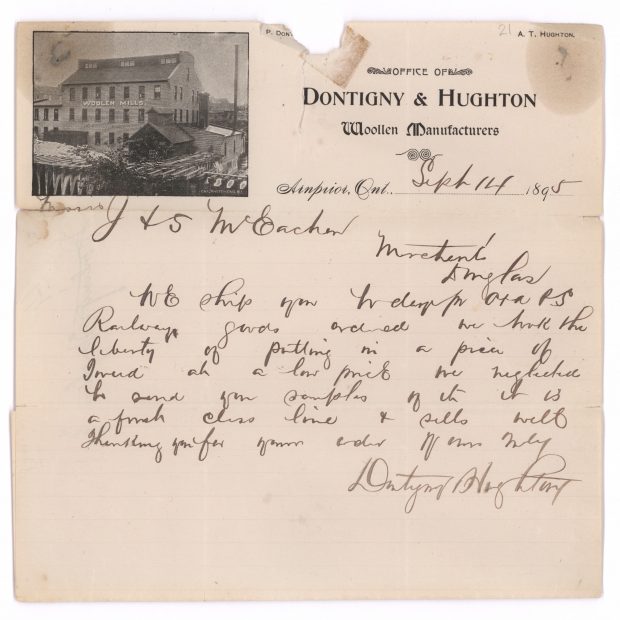 P. Don
21
A. T. Hughton.
OFFICE OF
Dontigny & Hughton
Woollen Manufacturers
WOOLEN MILLS
Arnprior, Ont. Sept 14 1895
Messrs J & S McEachen
Merchants
Douglas
We ship you to day pr O A & P S
Railway goods ordered we took the
liberty of putting in a piece of
Tweed at a low price we neglected
to send you samples of it it is
a first class line & sells well
Thanking you for your order Yours truly
Dontigny & Hughton